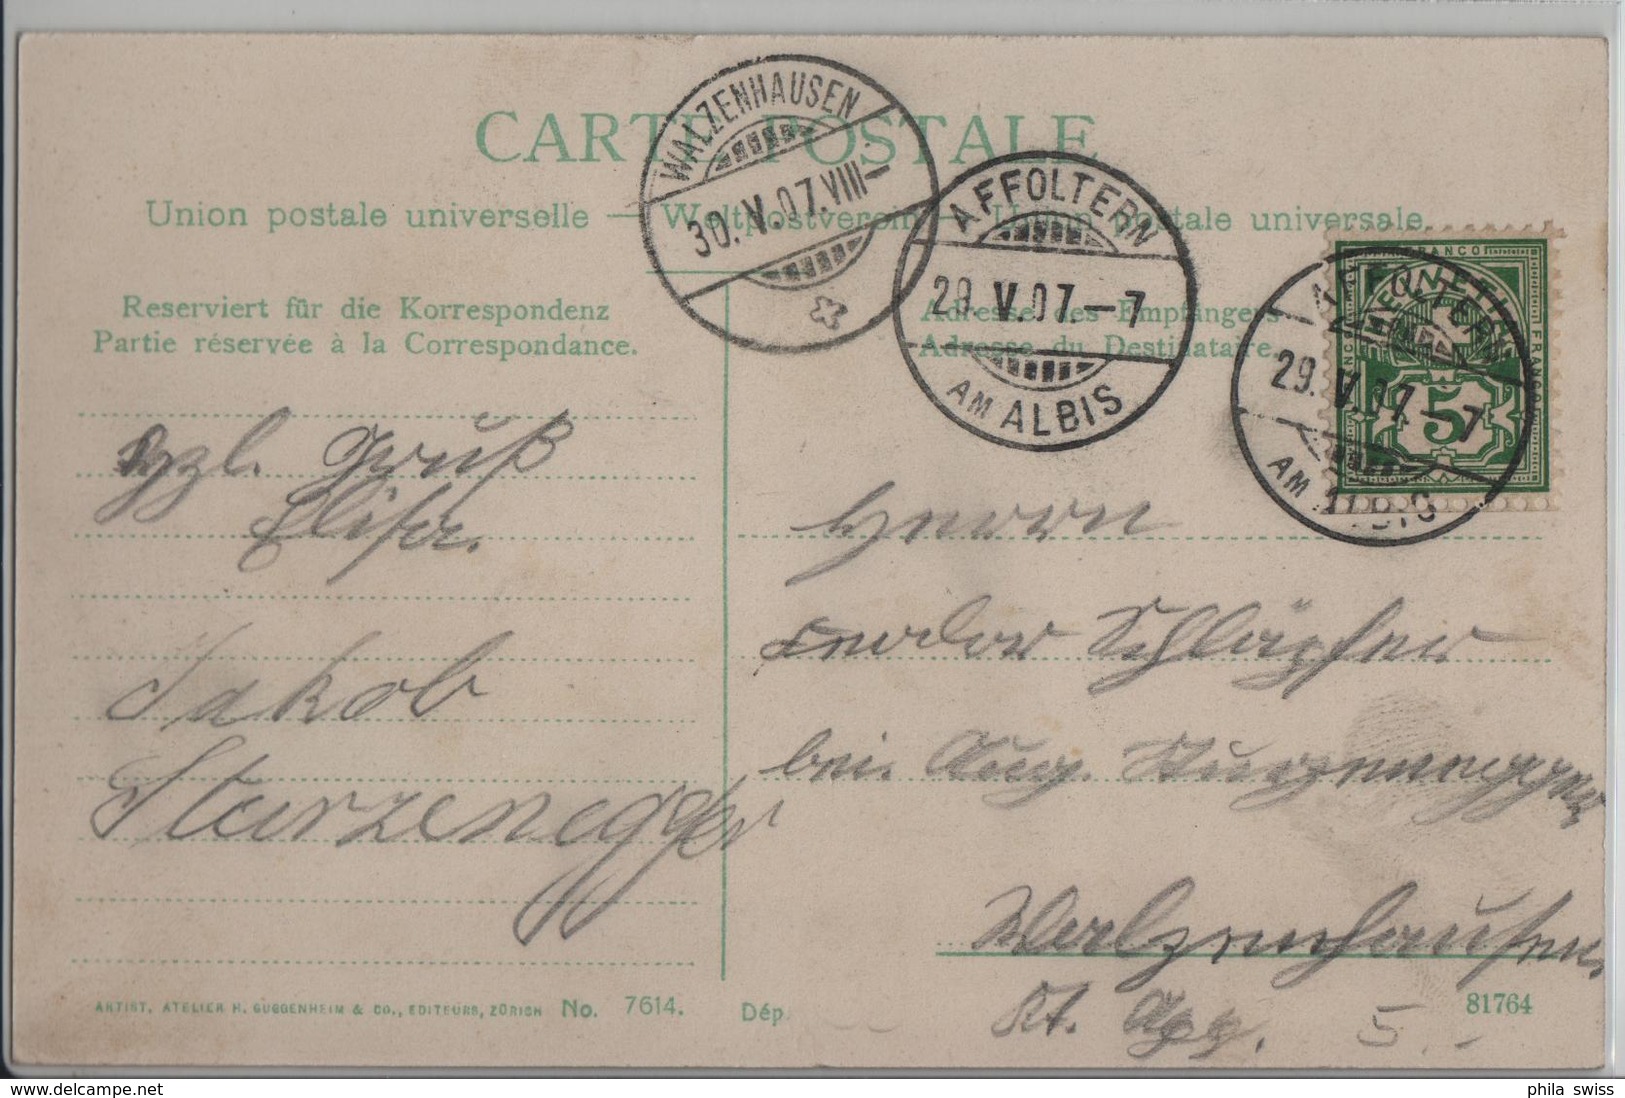 CARTE POSTALE
Union postale universelle — Weltpostverein — Union postale universale.
WALZENHAUSEN
30. V. 07. VIII–
AFFOLTERN
29. V. 07. – 7
AM ALBIS
FRANCO
HELVETIA
5
AFFOLTERN
29. V. 07. – 7
AM ALBIS
Reserviert für die Korrespondenz
Partie réservée à la Correspondance.
Adresse des Empfängers
Adresse du Destinataire.
Gruß
Jakob
Sturzenegger
Herrn
Schläpfer
bei Aug. Sturzenegger
Walzenhausen
Kt. App. 5.-
ARTIST. ATELIER H. GUGGENHEIM & CO., EDITEURS, ZÜRICH No. 7614. Dép. 81764
phila swiss